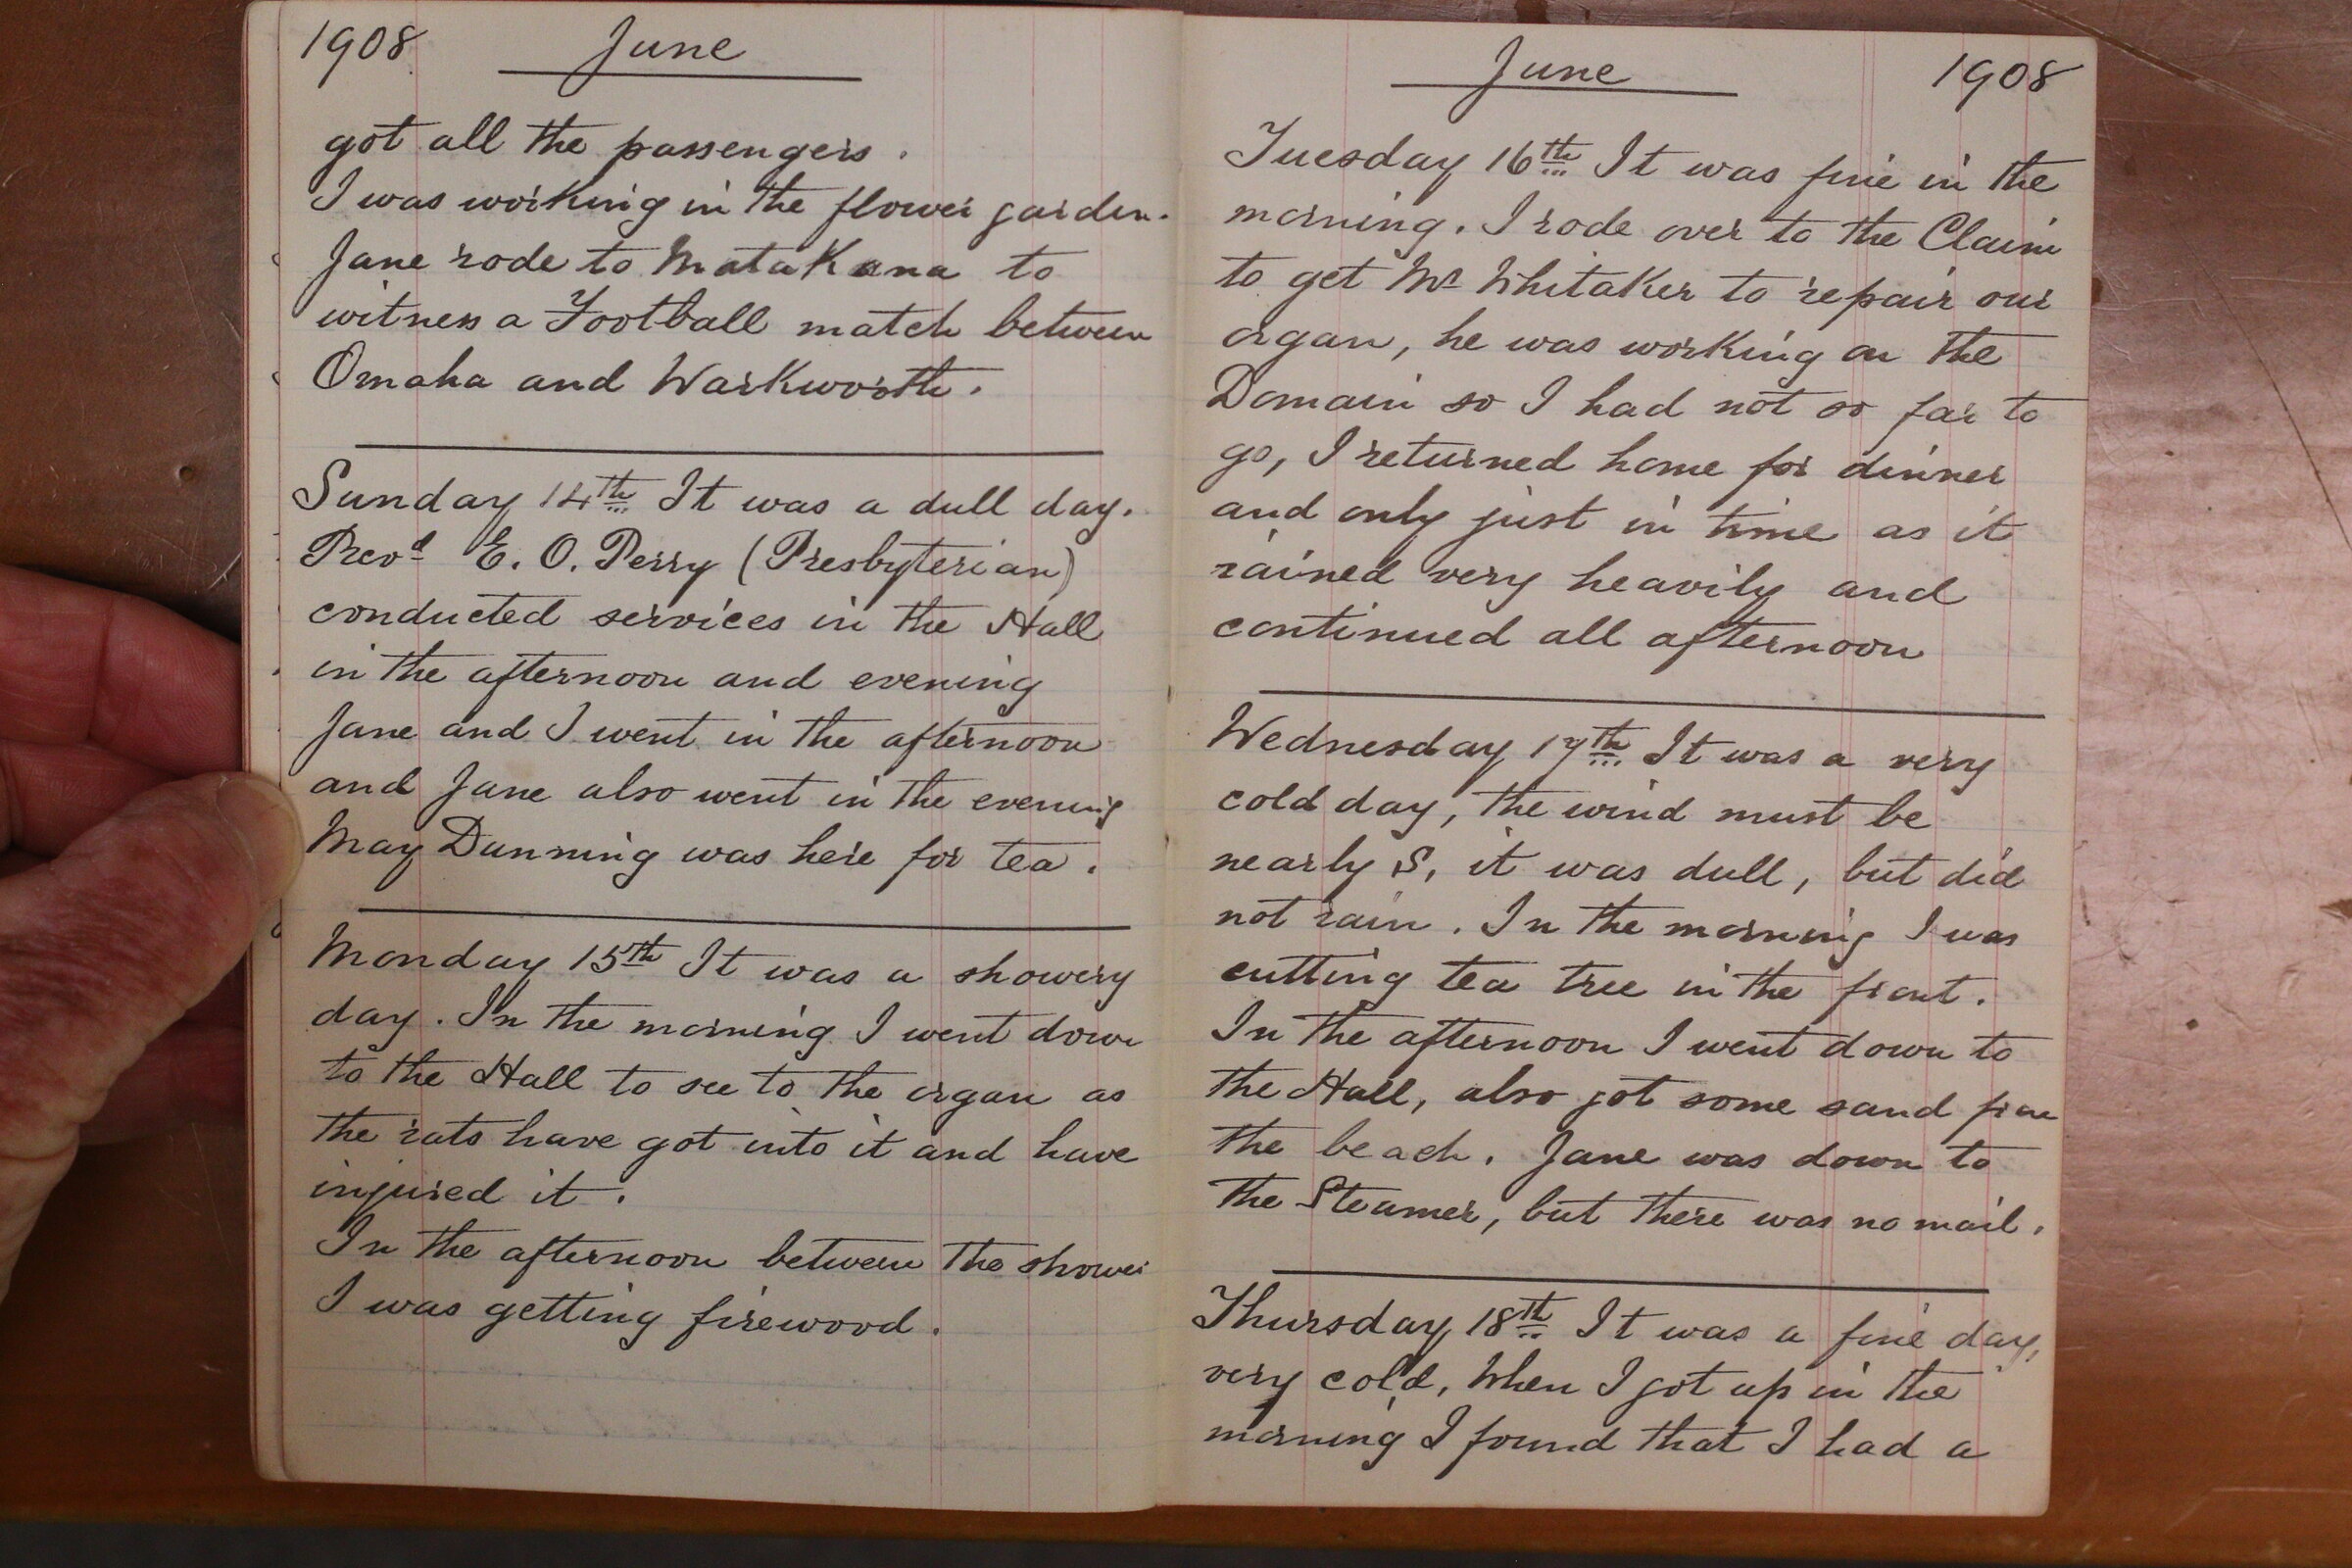 1908 June
got all the passengers.
I was working in the flower garden.
Jane rode to Matakana to
witness a Football match between
Omaha and Warkworth.
Sunday 14th It was a dull day.
Revd E. O. Perry (Presbyterian)
conducted services in the Hall
in the afternoon and evening
Jane and I went in the afternoon
and Jane also went in the evening
May Dunning was here for tea.
Monday 15th It was a showery
day. In the morning I went down
to the Hall to see to the organ as
the rats have got into it and have
injured it.
In the afternoon between the shower
I was getting firewood.
June 1908
Tuesday 16th It was fine in the
morning. I rode over to the Claim
to get Mr Whitaker to repair our
organ, he was working on the
Domain so I had not so far to
go, I returned home for dinner
and only just in time as it
rained very heavily and
continued all afternoon
Wednesday 17th It was a very
cold day, the wind must be
nearly S, it was dull, but did
not rain. In the morning I was
cutting tea tree in the front.
In the afternoon I went down to
the Hall, also got some sand from
the beach. Jane was down to
the Steamer, but there was no mail.
Thursday 18th It was a fine day,
very cold, When I got up in the
morning I found that I had a